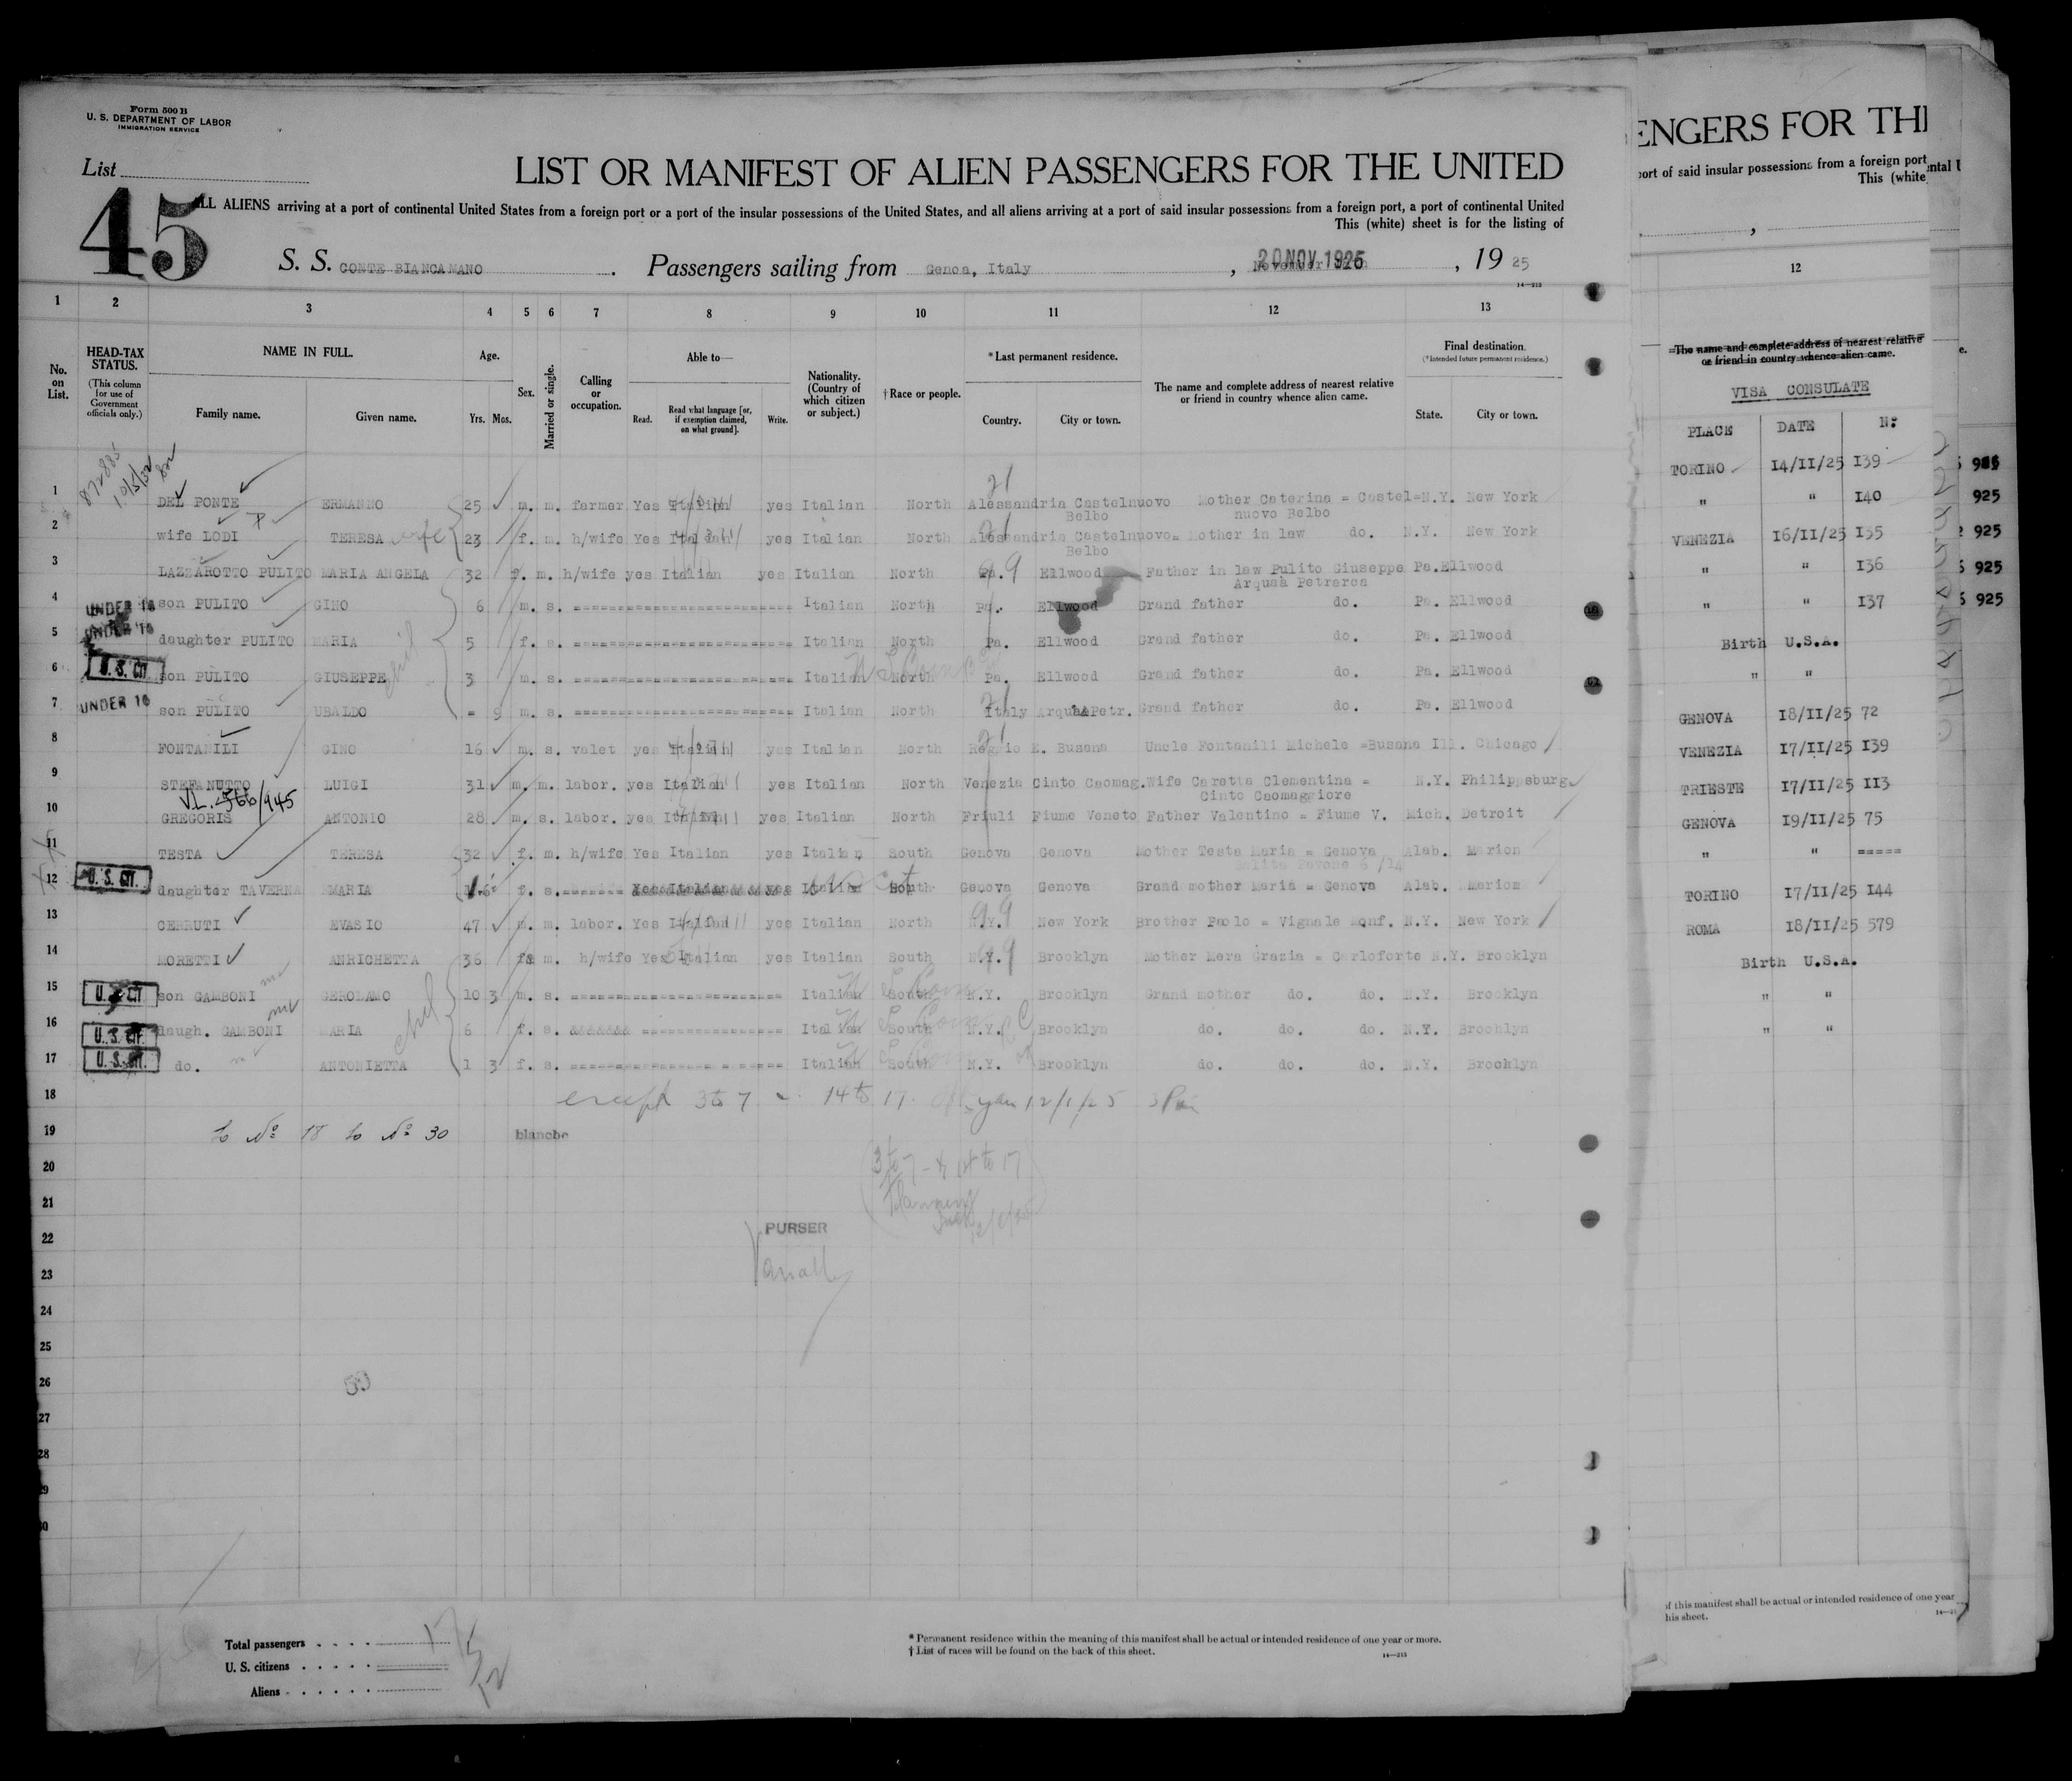 Form 500 B
U. S. DEPARTMENT OF LABOR
IMMIGRATION SERVICE
List
45
LIST OR MANIFEST OF ALIEN PASSENGERS FOR THE UNITED
ALL ALIENS arriving at a port of continental United States from a foreign port or a port of the insular possessions of the United States, and all aliens arriving at a port of said insular possessions from a foreign port, a port of continental United
This (white) sheet is for the listing of
S. S. CONTE BIANCAMANO . Passengers sailing from Genoa, Italy , 20 NOV. 1925 , 19 25
14—213
1 2 3 4 5 6 7 8 9 10 11 12 13
No. on List.
HEAD-TAX STATUS.
(This column for use of Government officials only.)
NAME IN FULL.
Family name. Given name.
Age.
Yrs. Mos.
Sex.
Married or single.
Calling or occupation.
Able to—
Read. Read what language [or, if exemption claimed, on what ground]. Write.
Nationality. (Country of which citizen or subject.)
† Race or people.
*Last permanent residence.
Country. City or town.
The name and complete address of nearest relative or friend in country whence alien came.
Final destination.
(*Intended future permanent residence.)
State. City or town.
1 DEL PONTE ERMANNO 25 m. m. farmer Yes Italian yes Italian North Alessandria Castelnuovo Belbo Mother Caterina = Castel= nuovo Belbo N.Y. New York
2 wife LODI TERESA wife 23 f. m. h/wife Yes Italian yes Italian North Alessandria Castelnuovo= Belbo Mother in law do. N.Y. New York
3 LAZZAROTTO PULITO MARIA ANGELA 32 f. m. h/wife yes Italian yes Italian North Pa. Ellwood Father in law Pulito Giuseppe Arquaà Petrarca Pa. Ellwood
4 UNDER 16 son PULITO GINO 6 m. s. Italian North Pa. Ellwood Grand father do. Pa. Ellwood
5 UNDER 16 daughter PULITO MARIA 5 f. s. Italian North Pa. Ellwood Grand father do. Pa. Ellwood
6 U.S. CIT. son PULITO GIUSEPPE 3 m. s. Italian North Pa. Ellwood Grand father do. Pa. Ellwood
7 UNDER 16 son PULITO UBALDO = 9 m. s. Italian North Italy Arquà Petr. Grand father do. Pa. Ellwood
8 FONTANILI GINO 16 m. s. valet yes Italian yes Italian North Reggio E. Busana Uncle Fontanili Michele =Busana Ill. Chicago
9 STEFANUTTO LUIGI 31 m. m. labor. yes Italian yes Italian North Venezia Cinto Caomag. Wife Caretta Clementina = Cinto Caomaggiore N.Y. Philippsburg
10 GREGORIS ANTONIO 28 m. s. labor. yes Italian yes Italian North Friuli Fiume Veneto Father Valentino = Fiume V. Mich. Detroit
11 TESTA TERESA 32 f. m. h/wife Yes Italian yes Italian South Genova Genova Mother Testa Maria = Genova Salita Pavone 6/14 Alab. Marion
12 U.S. CIT. daughter TAVERNA MARIA f. s. South Genova Genova Grand mother Maria = Genova Alab. Marion
13 CERRUTI EVASIO 47 m. m. labor. Yes Italian yes Italian North N.Y. New York Brother Paolo = Vignale Monf. N.Y. New York
14 MORETTI ANRICHETTA 36 m. h/wife Yes Italian yes Italian South N.Y. Brooklyn Mother Mera Grazia = Carloforte N.Y. Brooklyn
15 U.S. CIT son GAMBONI GEROLAMO 10 3 m. s. Italian South N.Y. Brooklyn Grand mother do. do. N.Y. Brooklyn
16 U.S. CIT. daugh. GAMBONI MARIA 6 f. s. Italian South N.Y. Brooklyn do. do. do. N.Y. Brooklyn
17 U.S. CIT. do. ANTONIETTA 1 3 f. s. Italian South N.Y. Brooklyn do. do. do. N.Y. Brooklyn
18 except 3 to 7 14 to 17 12/1/25
19 to Nº 18 to Nº 30 blanche
20 3 to 7 - & 14 to 17
21
22 PURSER
23
24
25
26
27
28
29
30
Total passengers 17
U. S. citizens 5
Aliens 12
* Permanent residence within the meaning of this manifest shall be actual or intended residence of one year or more.
† List of races will be found on the back of this sheet.
14—213
ENGERS FOR THI
port of said insular possessions from a foreign port
This (white
12
The name and complete address of nearest relative or friend in country whence alien came.
VISA CONSULATE
PLACE DATE Nº
TORINO 14/II/25 139
" " 140
VENEZIA 16/II/25 135
" " 136
" " 137
Birth U.S.A.
" "
GENOVA 18/II/25 72
VENEZIA 17/II/25 139
TRIESTE 17/II/25 113
GENOVA 19/II/25 75
" " =====
TORINO 17/II/25 144
ROMA 18/II/25 579
Birth U.S.A.
" "
" "
925
925
925
925
of this manifest shall be actual or intended residence of one year
his sheet.